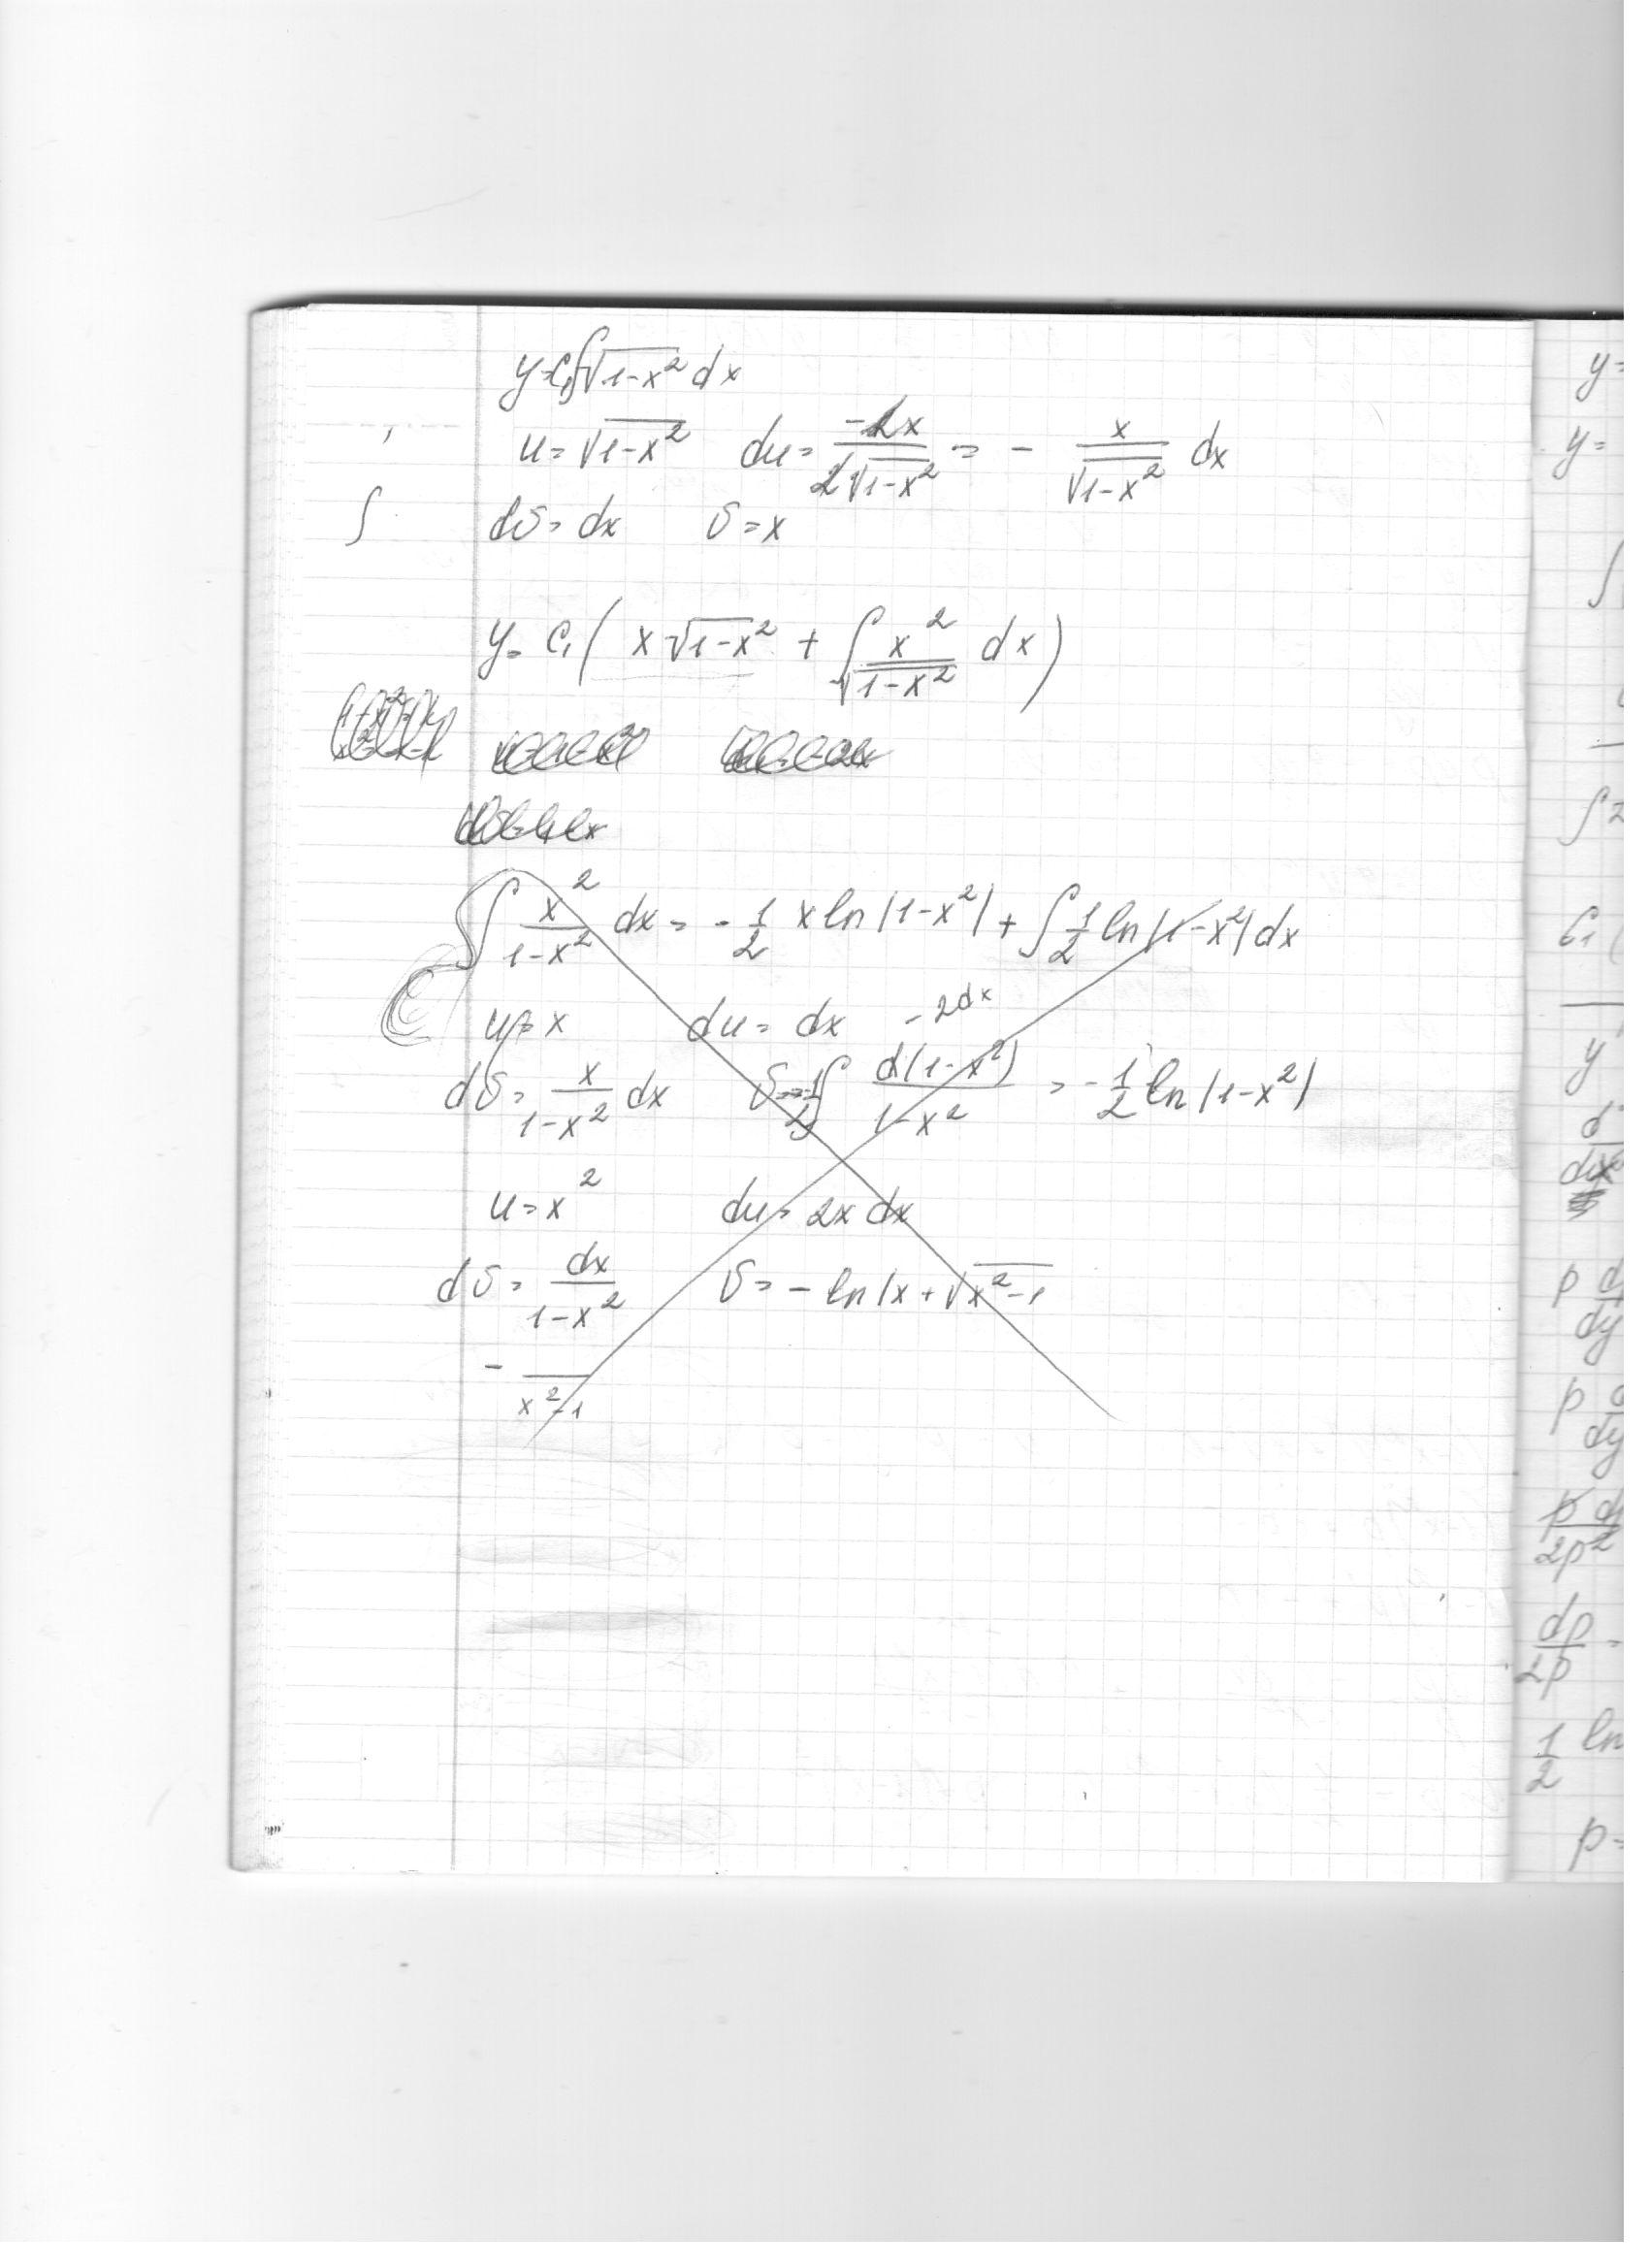 y=C₁∫√(1-x²) dx
u=√(1-x²) du= -2x/(2√(1-x²)) = - x/√(1-x²) dx
∫ dv= dx v=x
y= C₁( x√(1-x²) + ∫ x²/√(1-x²) dx)
∫ x²/(1-x²) dx= -1/2 x ln|1-x²| + ∫ 1/2 ln|1-x²| dx
u= x du= dx -2dx
dv= x/(1-x²) dx v= -1/2 ∫ d(1-x²)/(1-x²) = -1/2 ln|1-x²|
u= x² du= 2x dx
dv= dx/(1-x²) v= - ln|x+√(x²-1)
- /(x²-1)
y=
y=
∫
∫2
C₁(
y
d
dx
p d
dy
p
dy
p d
2p²
dp/2p =
1/2 ln
p=